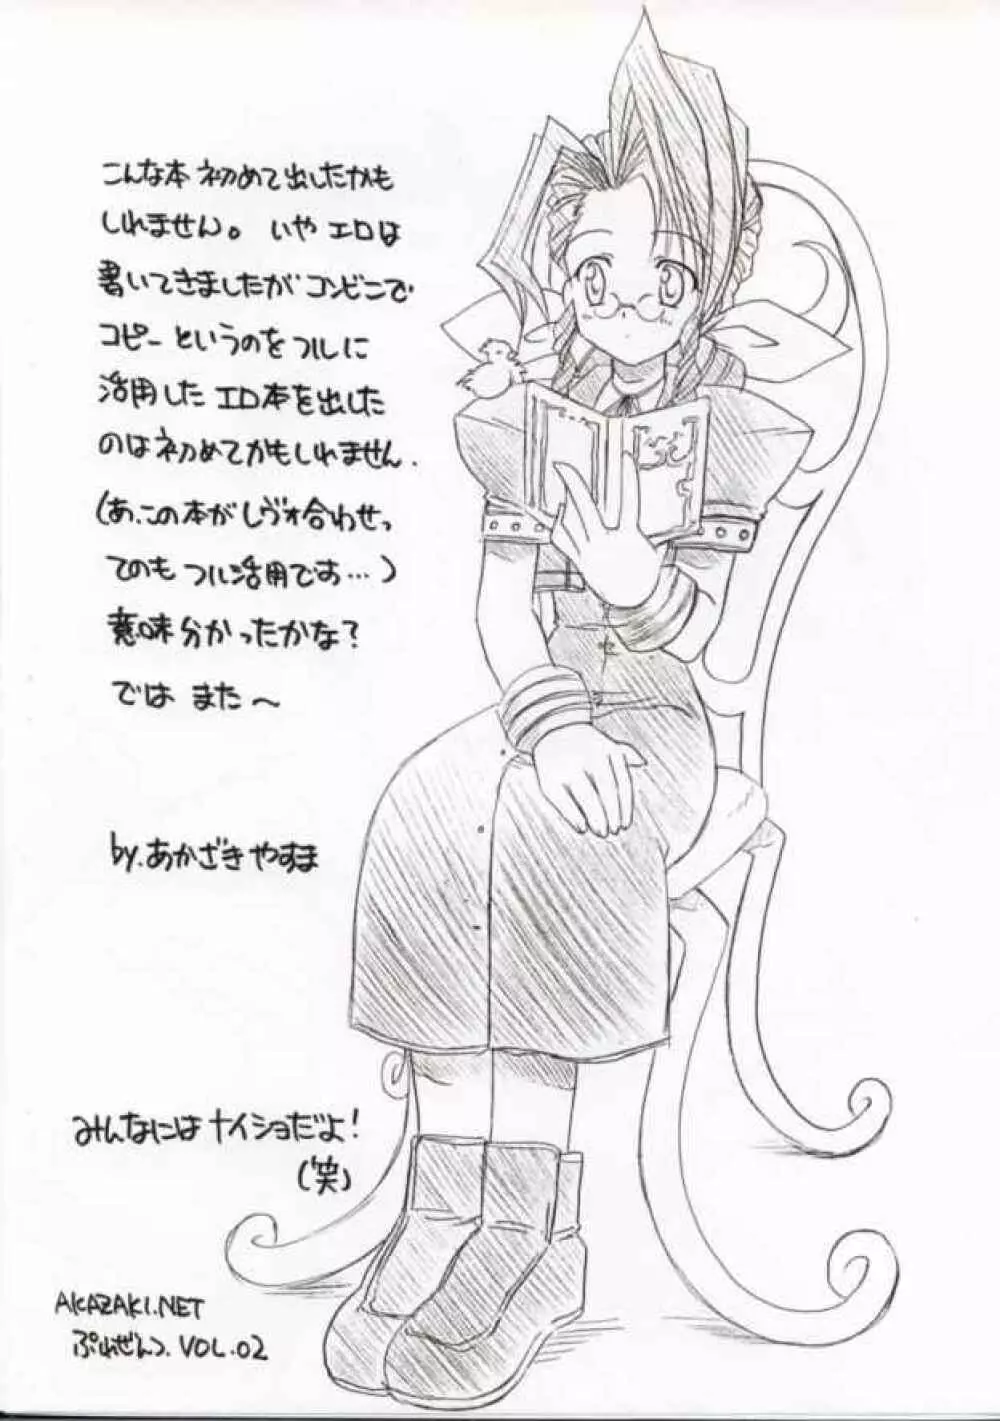 こんな本 初めて出したかも
しれません。いや エロは
書いてきましたが コンビニで
コピー というのを フルに
活用した エロ本を出した
のは初めてかもしれません.
(あ、この本がレヴォ合わせっ
てのも フル活用です…)
意味分かったかな?
では また〜
by.あかざきやすま
みんなには ナイショだよ!
(笑)
AKAZAKI.NET
ぷれぜんつ. VOL.02